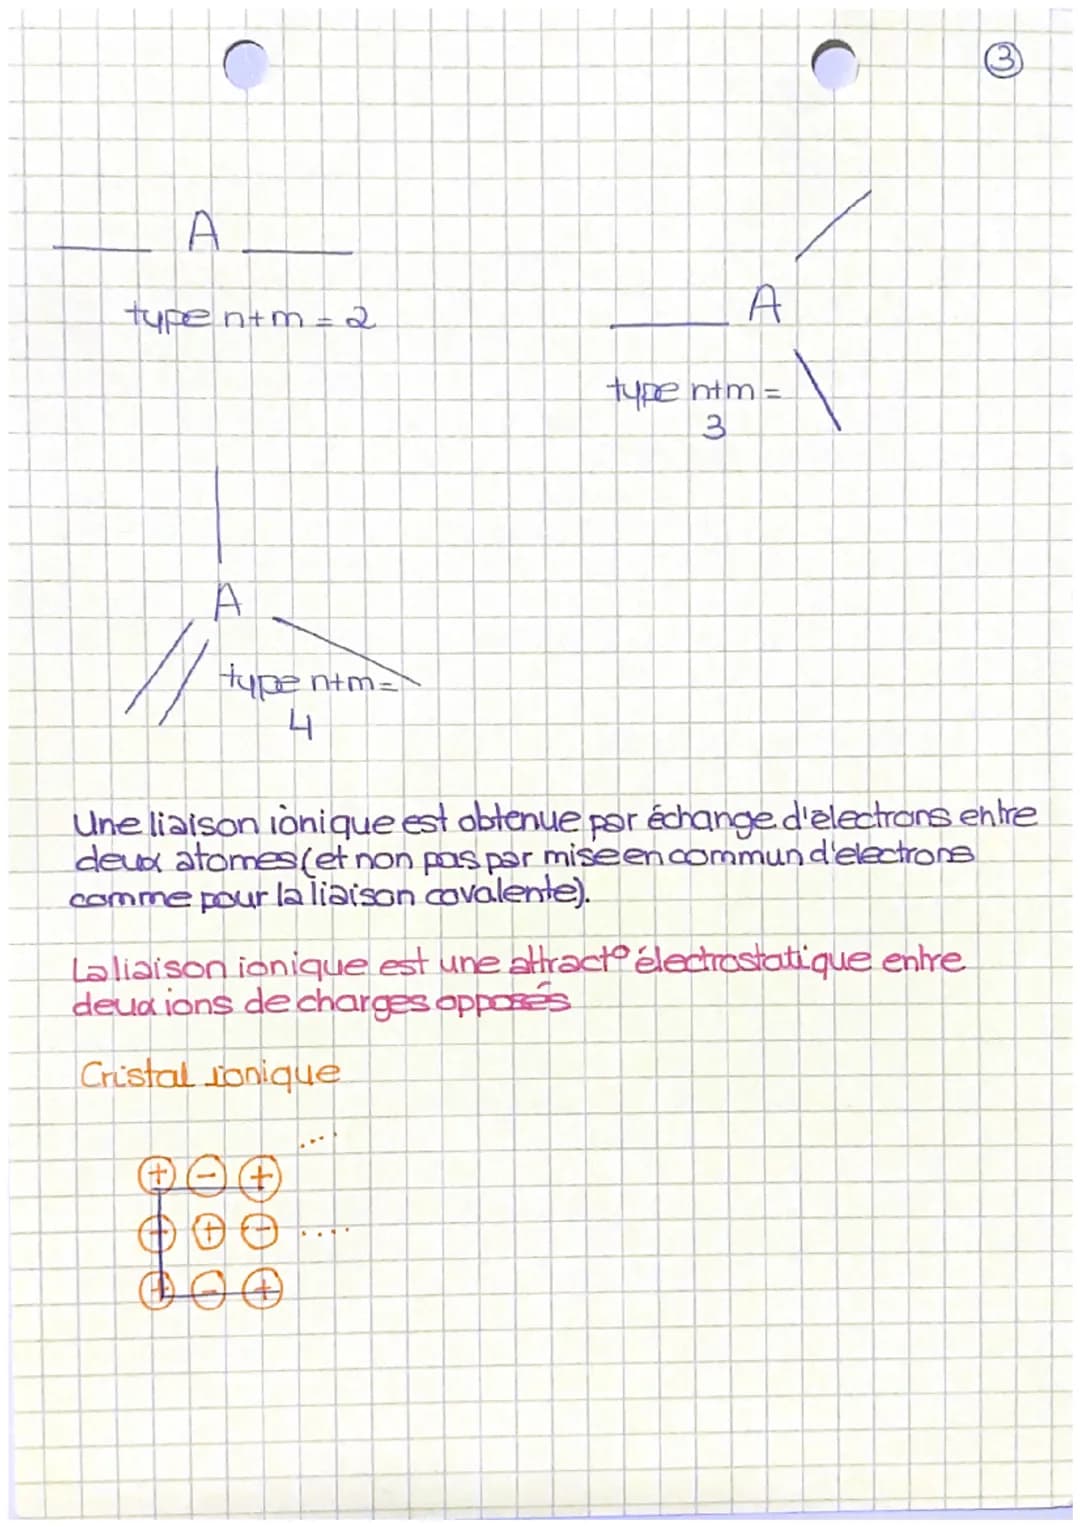 3
A
type n+m = 2
A
type n+m =
3
A
type n+m =
4
Une liaison iònique est obtenue par échange d'electrons entre
deux atomes (et non pas par mise en commun d'electrons
comme pour la liaison covalente).
La liaison ionique est une attract° électrostatique entre
deux ions de charges opposés
Cristal ionique
+ - + ....
- + - ....
+ - +